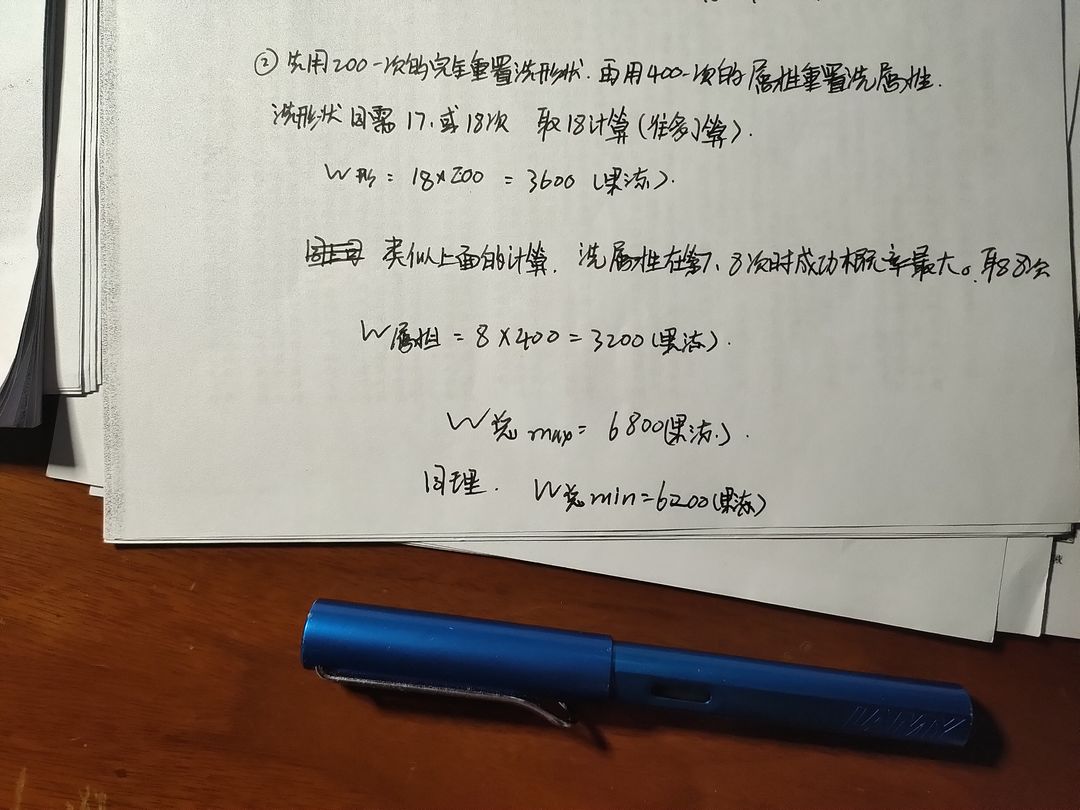 ② 先用200一次的完全重置洗形状.再用400一次的属性重置洗属性.
洗形状只需17、或18次 取18计算(往多了算).
W形 = 18×200 = 3600 (果冻).
类似上面的计算. 洗属性在第7、8次时成功概率最大。取8次
W属性 = 8×400=3200(果冻).
W总max= 6800(果冻).
同理. W总min=6200(果冻)